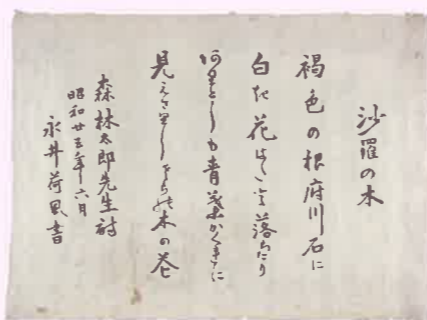 沙羅の木
褐色の根府川石に
白き花はたと落ちたり
阿里としも青葉かくれに
見えさりしさらの木の花
森林太郎先生詩
昭和廿五年六月
永井荷風書